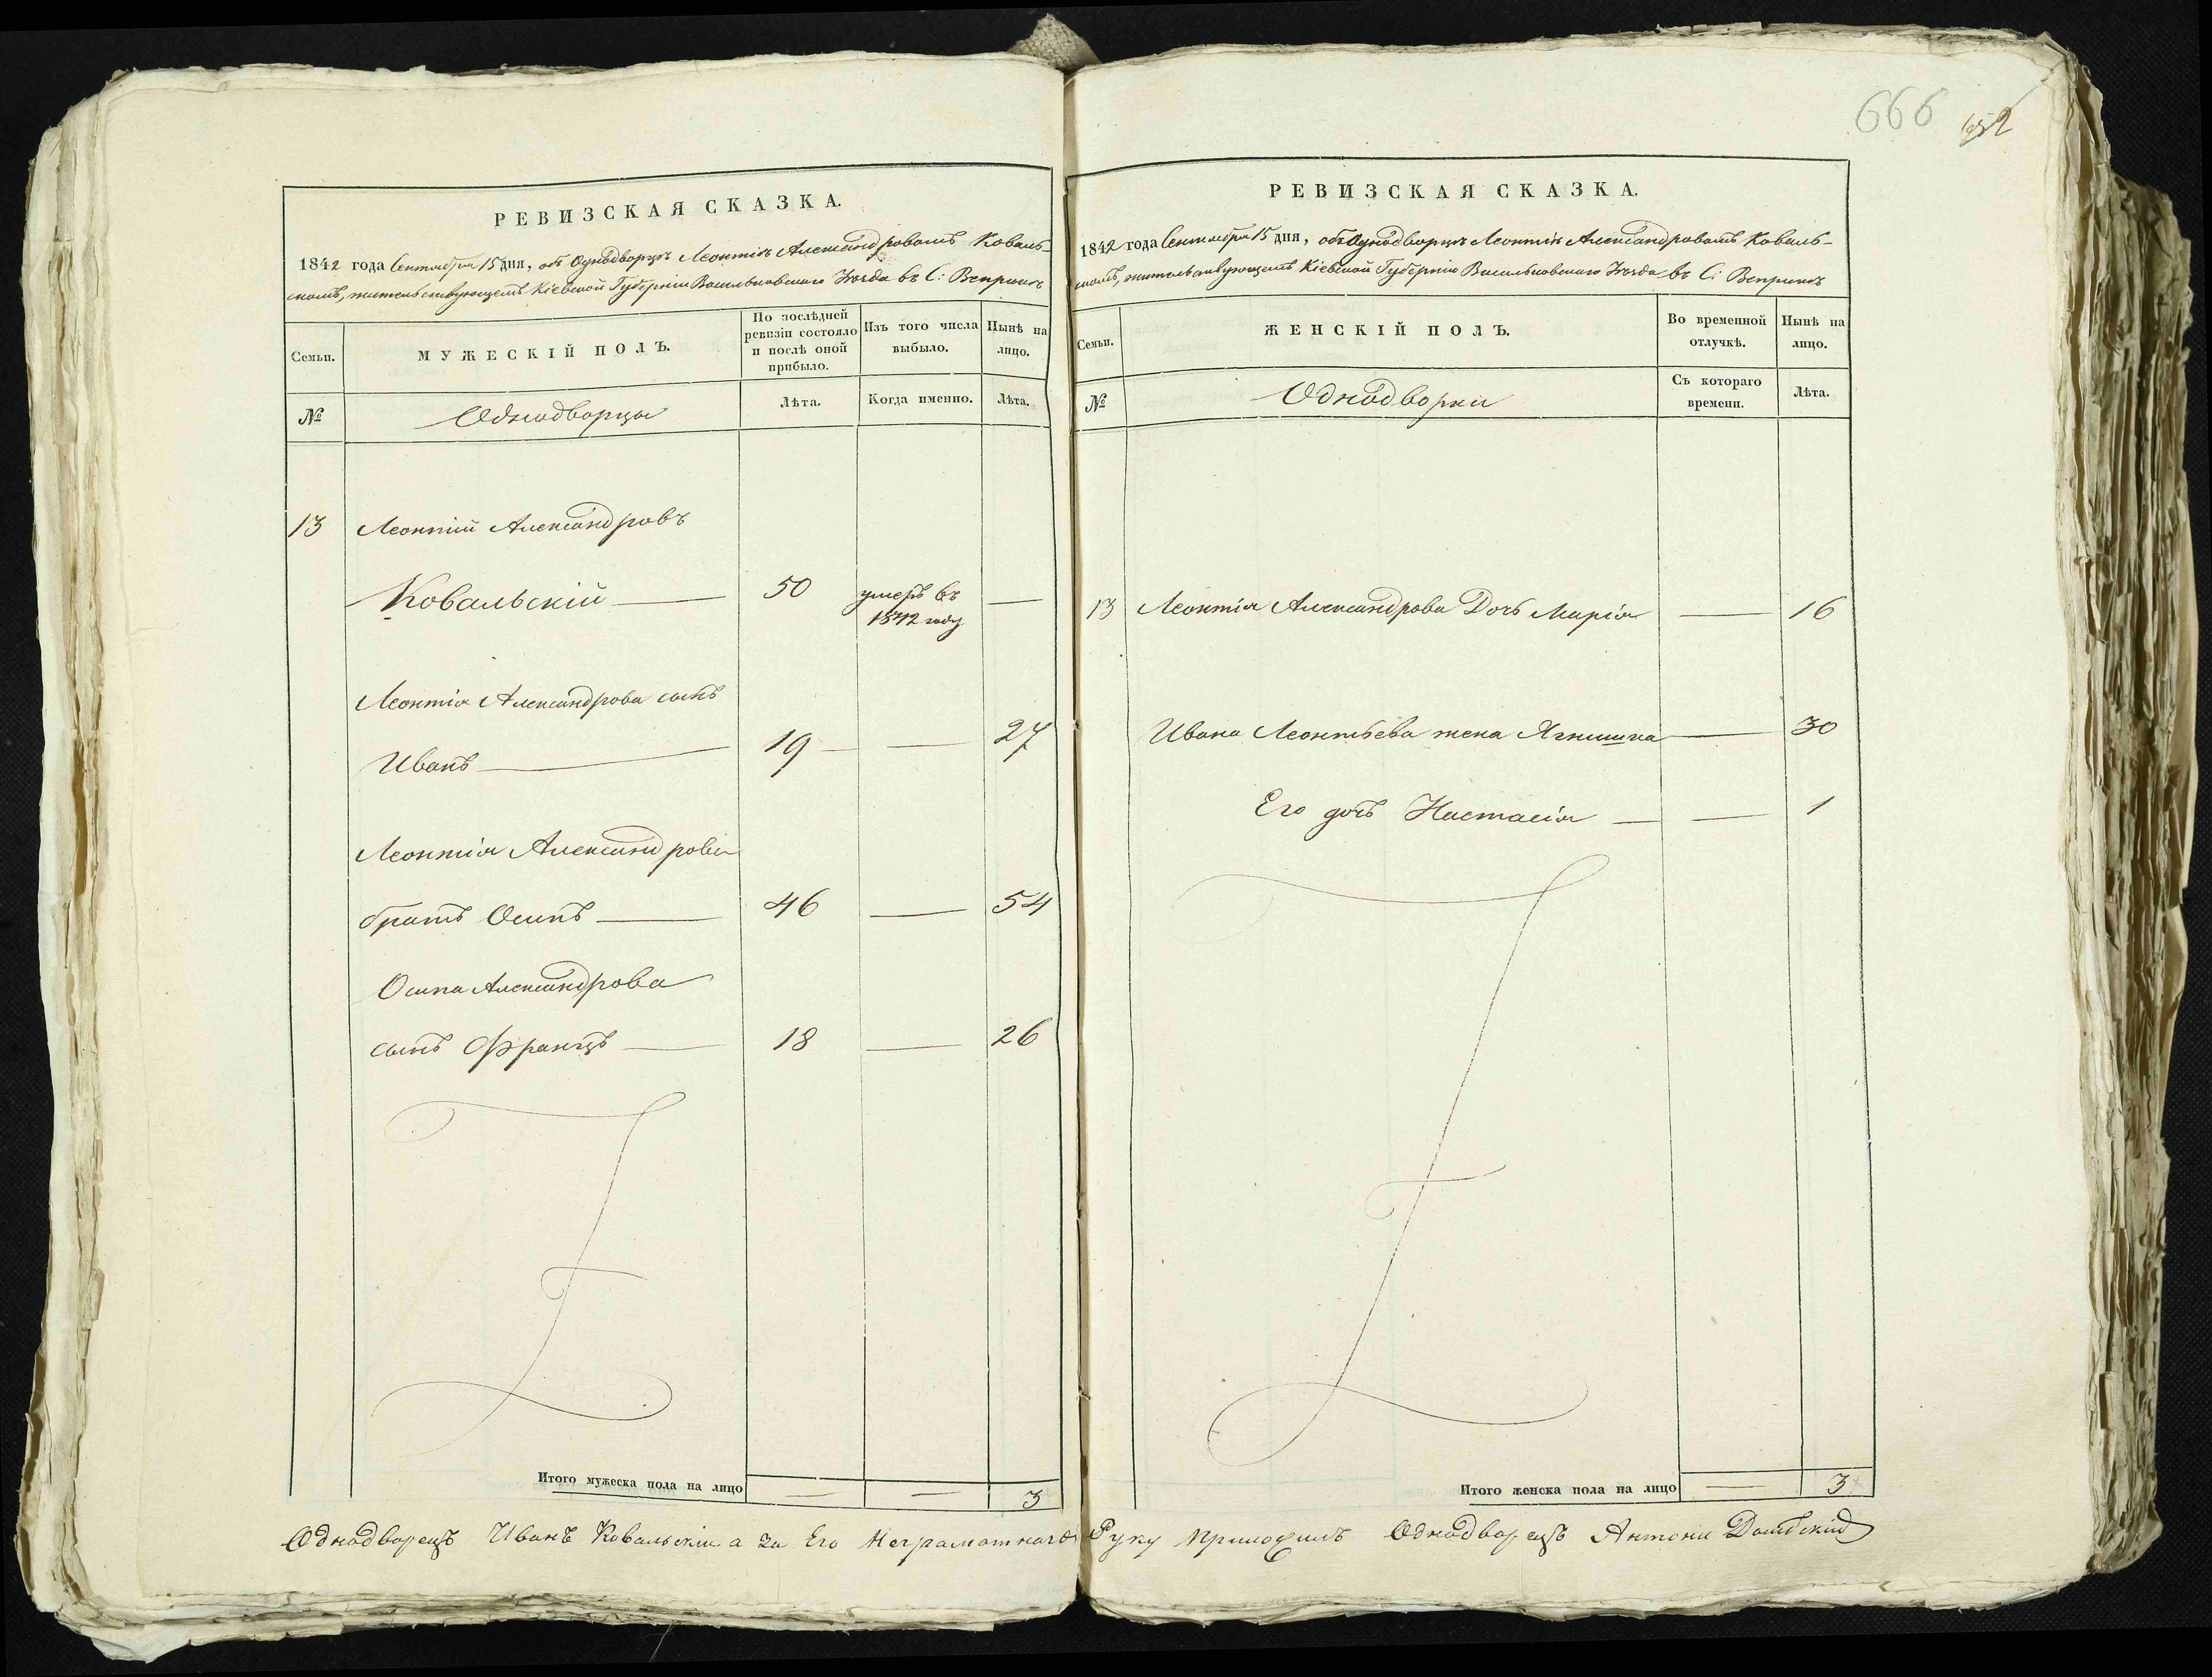 666 652
РЕВИЗСКАЯ СКАЗКА.
1842 года Сентября 15 дня, объ Однодворцѣ Леонтіѣ Александровомъ Коваль-
скомъ, жительствующемъ Кіевской Губерніи Васильковскаго Уѣзда въ С: Веприкѣ
Семьи.
МУЖЕСКІЙ ПОЛЪ.
По послѣдней ревизіи состояло и послѣ оной прибыло.
Изъ того числа выбыло.
Нынѣ на лицо.
№
Однодворцы
Лѣта.
Когда именно.
Лѣта.
13 Леонтій Александровъ
Ковальскій — 50 умеръ въ —
1842 году
Леонтія Александрова сынъ
Иванъ — 19 — — 27
Леонтія Александрова
братъ Осипъ — 46 — 54
Осипа Александрова
сынъ Францъ — 18 — 26
Итого мужеска пола на лицо — — 3
РЕВИЗСКАЯ СКАЗКА.
1842 года Сентября 15 дня, объ Однодворцѣ Леонтіѣ Александровомъ Коваль-
скомъ, жительствующемъ Кіевской Губерніи Васильковскаго Уѣзда въ С: Веприкѣ
Семьи.
ЖЕНСКІЙ ПОЛЪ.
Во временной отлучкѣ.
Нынѣ на лицо.
№
Однодворки
Съ котораго времени.
Лѣта.
13 Леонтія Александрова Дочь Марія — 16
Ивана Леонтьева жена Ягнишка — 30
Его дочь Настасія — — 1
Итого женска пола на лицо — 3
Однодворецъ Иванъ Ковальскій а за Его Неграматнаго Руку приложилъ Однодворецъ Антони